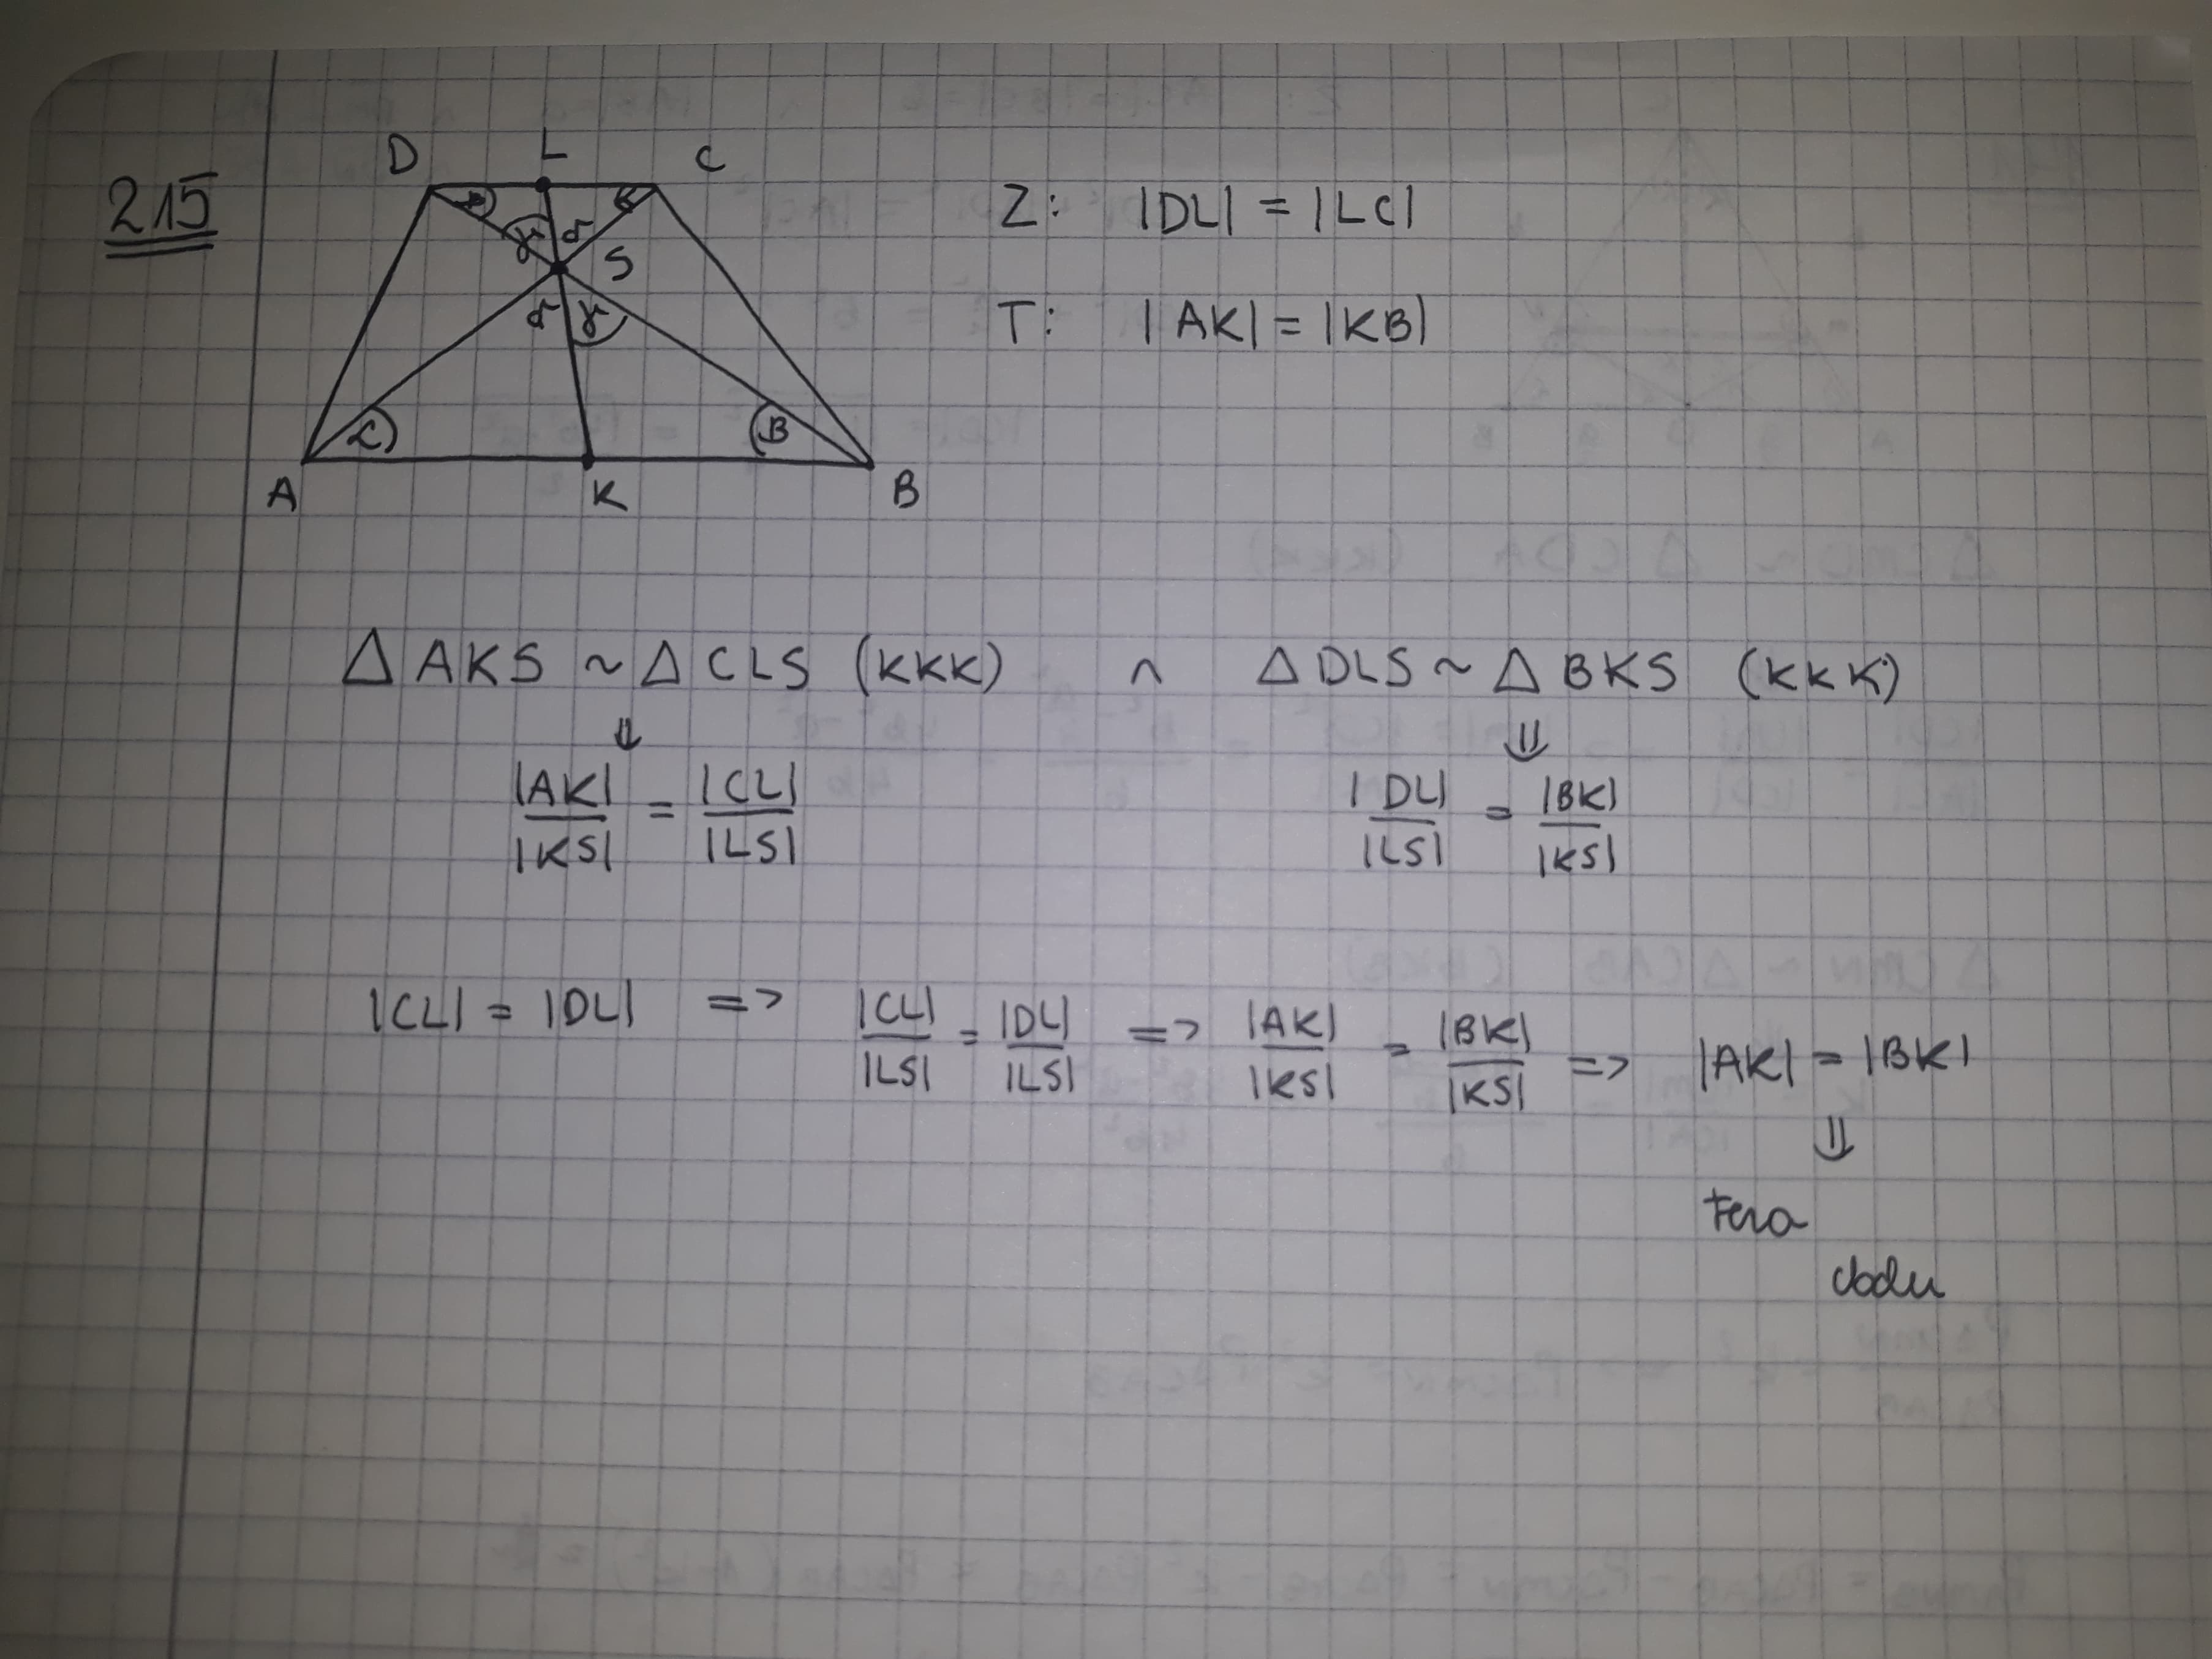 215
D L C
β α
γ δ
S
δ γ
α β
A K B
Z: |DL| = |LC|
T: |AK| = |KB|
△AKS ~ △CLS (KKK) ∧ △DLS ~ △BKS (KKK)
⇓ ⇓
|AK|/|KS| = |CL|/|LS| |DL|/|LS| = |BK|/|KS|
|CL| = |DL| => |CL|/|LS| = |DL|/|LS| => |AK|/|KS| = |BK|/|KS| => |AK| = |BK|
⇓
Teza